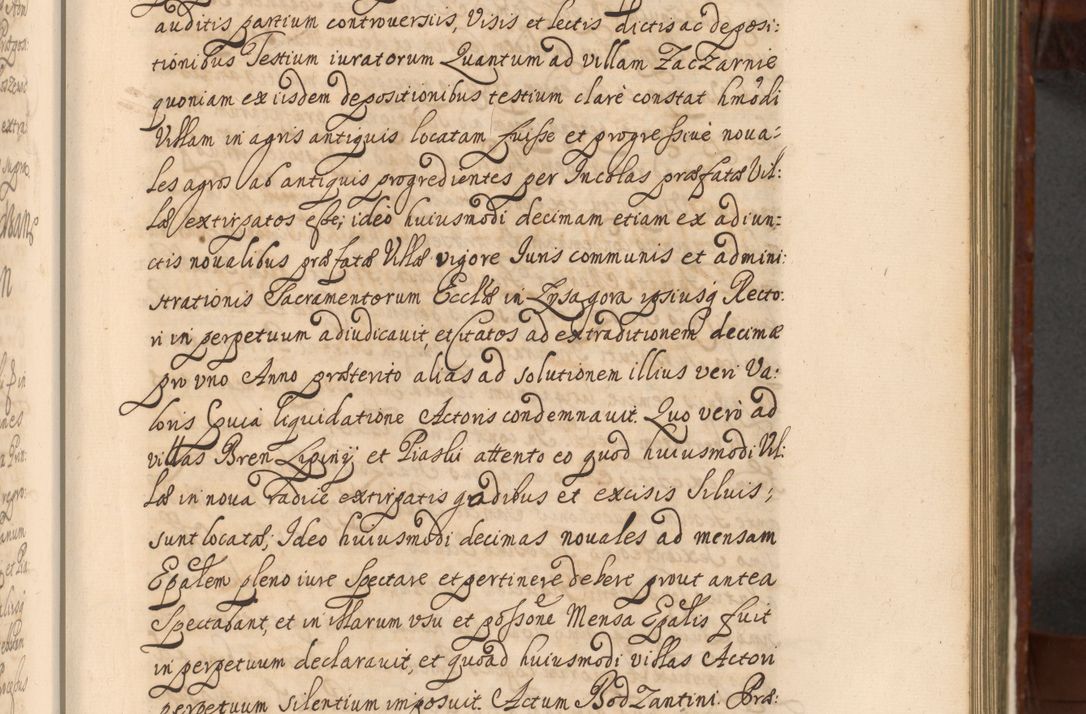 auditis partium controversiis, Visis et lectis dictis ac deposi:
tionibus Testium iuratorum Quantum ad villam ZacZarnie
quoniam ex iisdem depositionibus testium clarè constat hmōdi
Villam in agris antiquis locatam fuisse et progressivè nova:
les agros ab antiquis progredientes per Incolas præfatæ Vil:
læ extirpatos esse; ideo huiusmodi decimam etiam ex adiun:
ctis novalibus præfatæ Villæ vigore Iuris communis et admini:
strationis Sacramentorum Ecclæ in Lysagora ipsiusq Recto:
ri in perpetuum adiudicavit, et Citatos ad extraditionem decimæ
pro vno Anno præterito alias ad solutionem illius veri Va:
loris Cuius liquidatione Actoris condemnavit. Quo verò ad
villas Bren Lipiny et Piaski attento eo quod huiusmodi Vil:
læ in nova radice extirpatis gradibus et excisis Siluis;
sunt locatæ; Ideo huiusmodi decimas novales ad mensam
Epalem pleno iure Spectare et pertinere debere prout antea
Spectabant, et in illarum vsu et possōne Mensa Epalis fuit
in perpetuum declaravit, et quoad huiusmodi villas Actori
perpetuum silentium imposuit. Actum BodZantini. Præ: